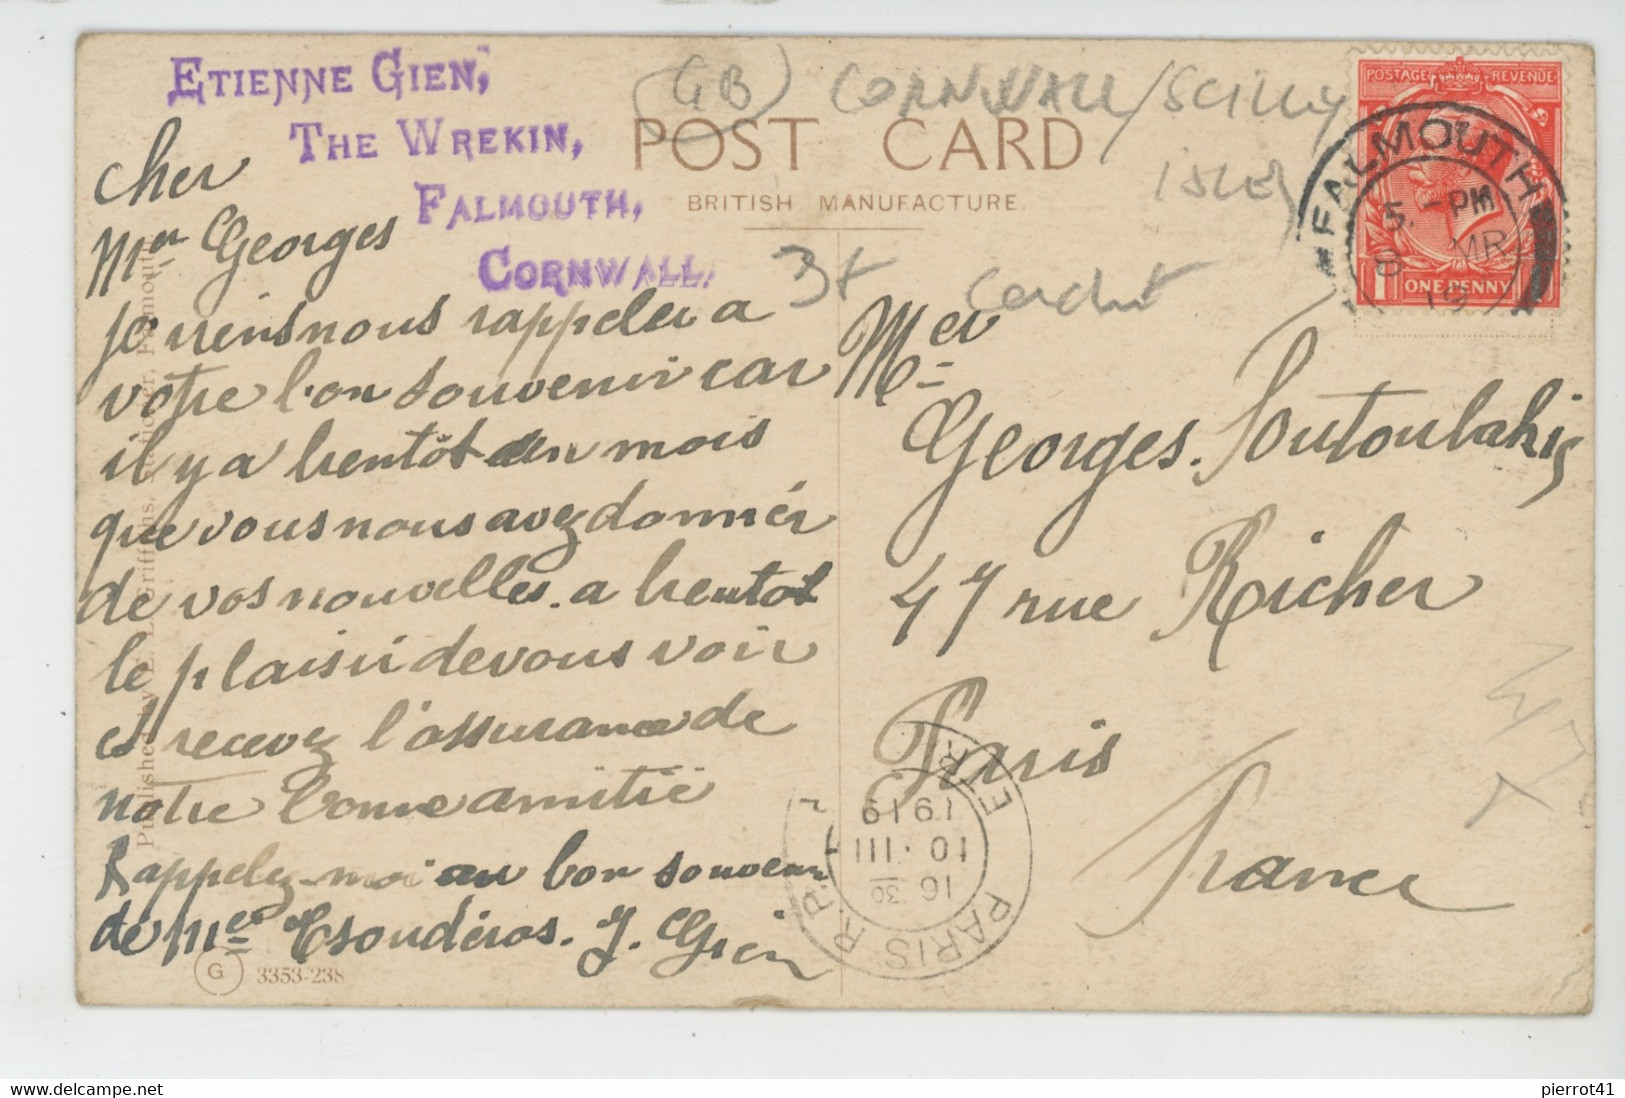 ETIENNE GIEN,
THE WREKIN,
FALMOUTH,
CORNWALL.
GB CORNWALL/SCILLY
ISLES
POST CARD
BRITISH MANUFACTURE
3t cachet
POSTAGE REVENUE
ONE PENNY
FALMOUTH
5. - PM
8 MR
19
cher
Mer Georges
je viens nous rappeler a
votre bon souvenir car
il y a bientôt un mois
que vous nous avez donnér
de vos nouvelles. a bientot
le plaisir de vous voir
et recevez l'assurance de
notre bonne amitié
Rappelez-moi au bon souvenir
de Mer Tsoudéros. J. Gien
Mer
Georges. Soutoulakis
47 rue Richer
Paris
France
PARIS R.P.
ETR
16 30
10 . III
1919
Published by E. L. Griffiths, Stationer, Falmouth
G 3353-238
pierrot41
delcampe.net